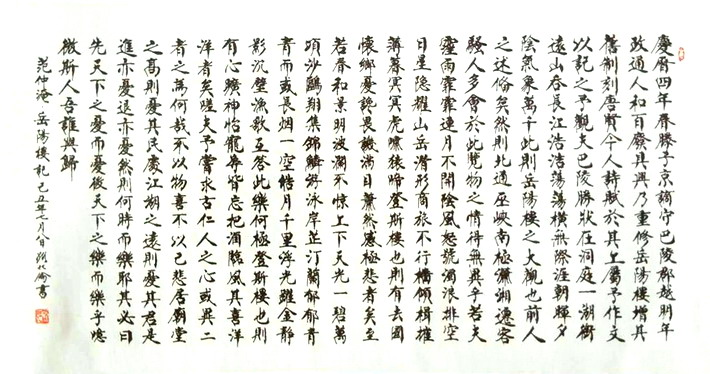 慶曆四年春滕子京謫守巴陵郡越明年
政通人和百廢具興乃重修岳陽樓增其
舊制刻唐賢今人詩賦於其上屬予作文
以記之予觀夫巴陵勝狀在洞庭一湖銜
遠山吞長江浩浩蕩蕩橫無際涯朝暉夕
陰氣象萬千此則岳陽樓之大觀也前人
之述備矣然則北通巫峽南極瀟湘遷客
騷人多會於此覽物之情得無異乎若夫
霪雨霏霏連月不開陰風怒號濁浪排空
日星隱耀山岳潛形商旅不行檣傾楫摧
薄暮冥冥虎嘯猿啼登斯樓也則有去國
懷鄉憂讒畏譏滿目蕭然感極悲者矣至
若春和景明波瀾不驚上下天光一碧萬
頃沙鷗翔集錦鱗游泳岸芷汀蘭郁郁青
青而或長烟一空皓月千里浮光躍金静
影沉璧漁歌互答此樂何極登斯樓也則
有心曠神怡寵辱皆忘把酒臨風其喜洋
洋者矣嗟夫予嘗求古仁人之心或異二
者之為何哉不以物喜不以己悲居廟堂
之高則憂其民處江湖之遠則憂其君是
進亦憂退亦憂然則何時而樂耶其必曰
先天下之憂而憂後天下之樂而樂乎噫
微斯人吾誰與歸
范仲淹岳陽樓記己丑年七月八日書